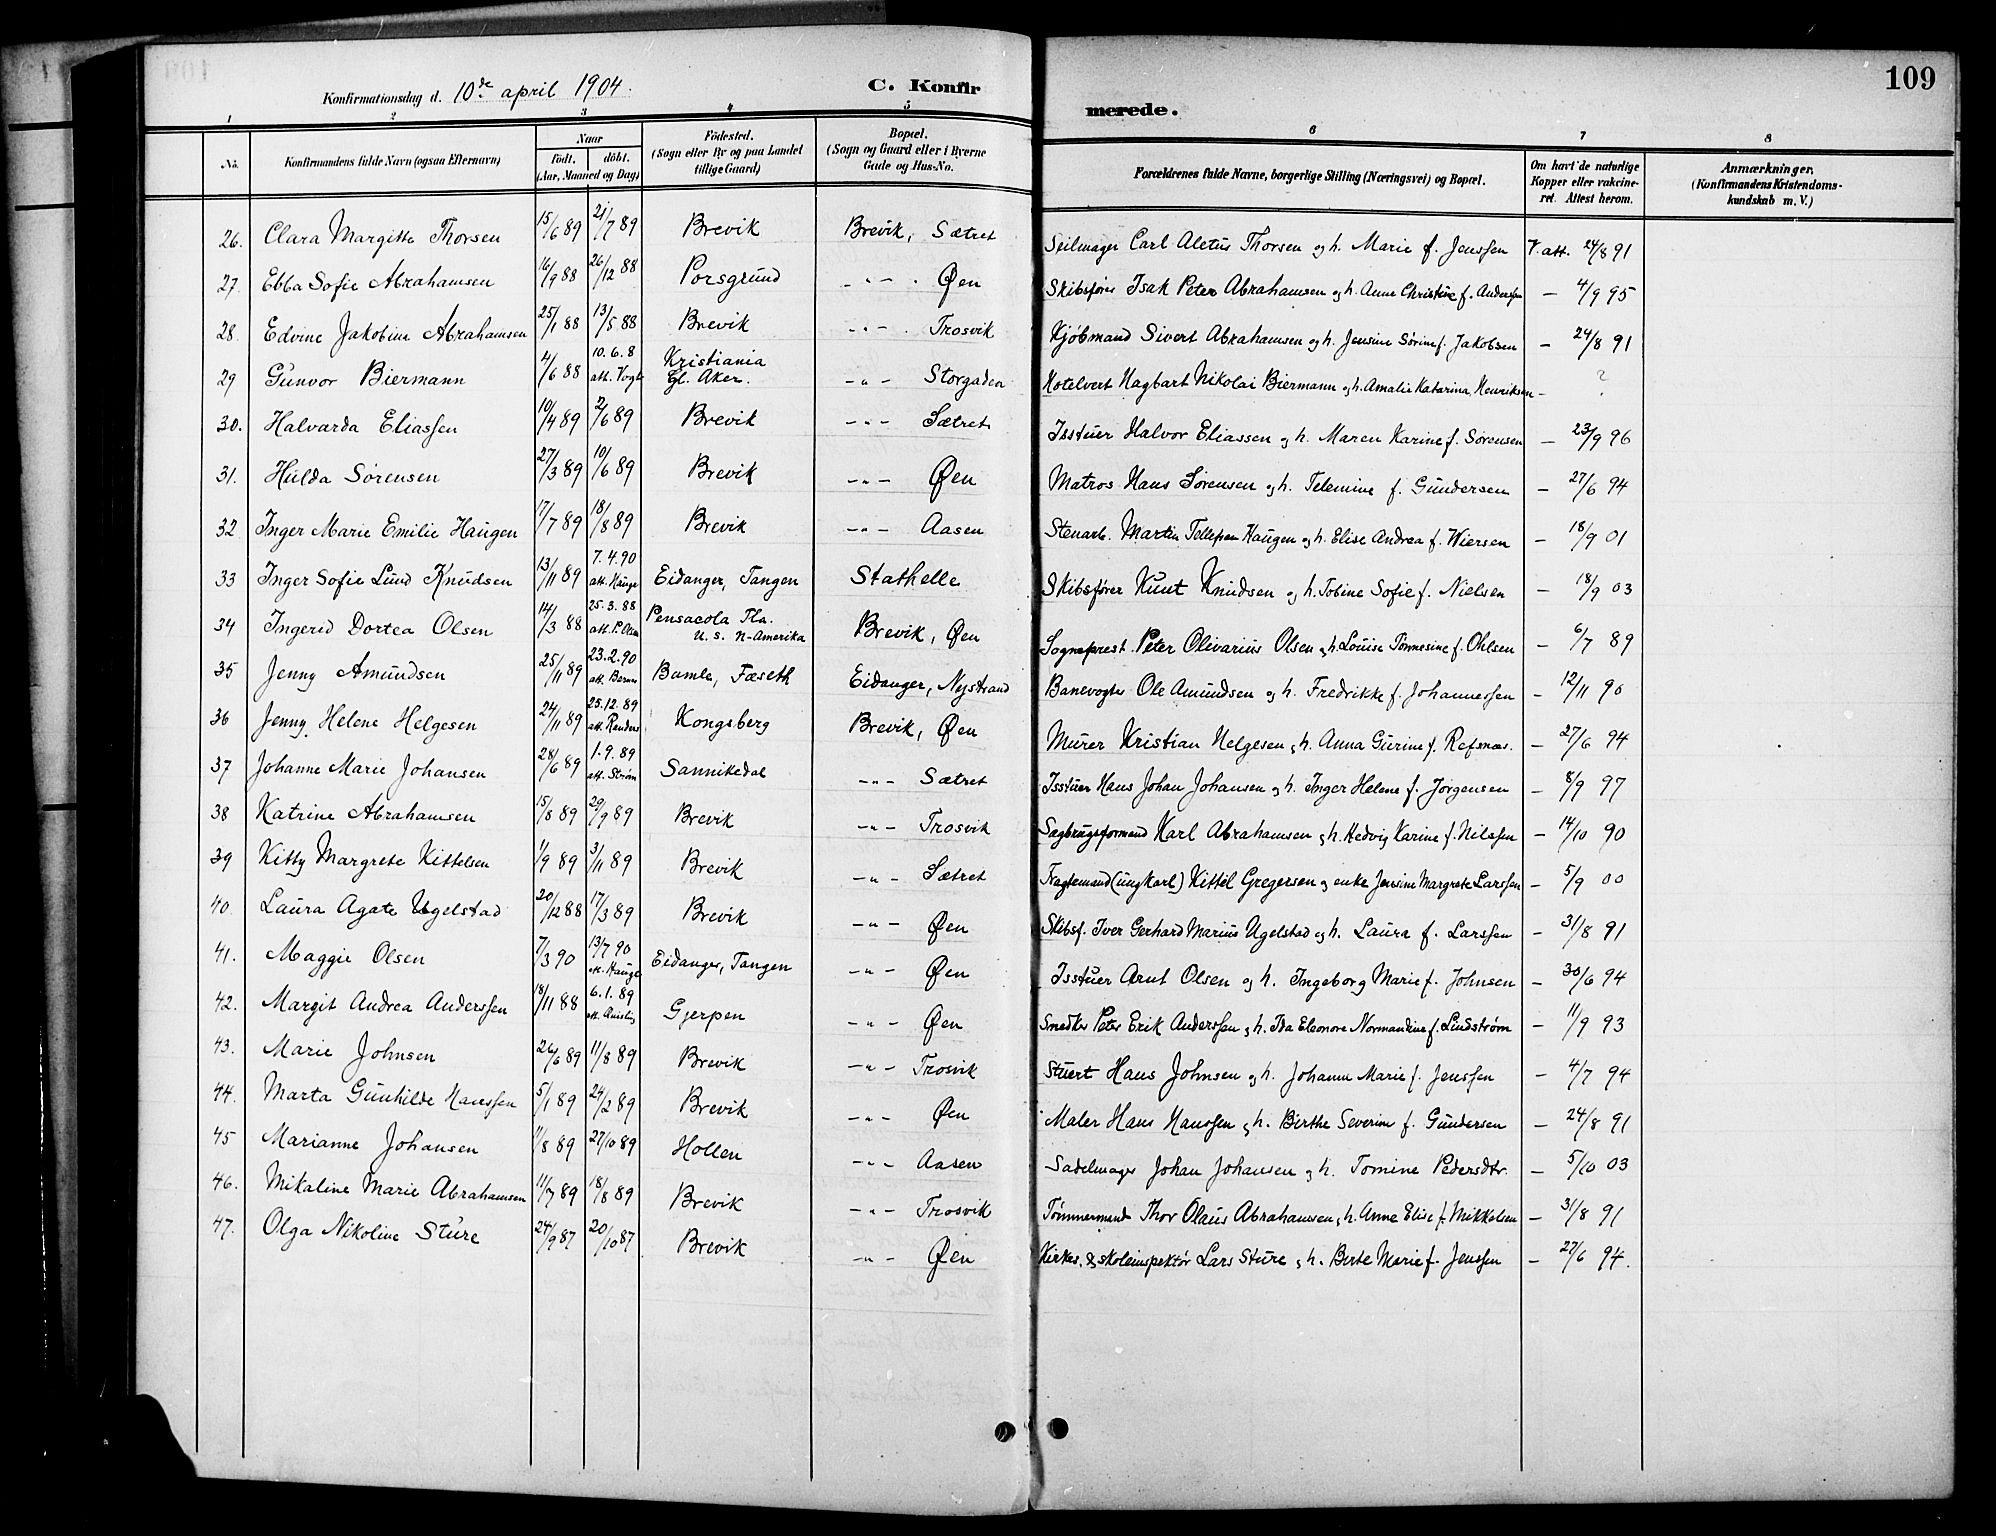 109
Konfirmationsdag d. 10de april 1904.
C. Konfir
merede.
1 2 3 4 5 6 7 8
No. Konfirmandens fulde Navn (ogsaa Efternavn) Naar födt. döbt. (Aar, Maaned og Dag) Födested. (Sogn eller By og paa Landet tillige Gaard) Bopæl. (Sogn og Gaard eller i Byerne Gade og Hus-No. Forældrenes fulde Navne, borgerlige Stilling (Næringsvei) og Bopæl. Om havt de naturlige Kopper eller vakcineret. Attest herom. Anmærkninger. (Konfirmandens Kristendomskundskab m. V.)
26. Clara Margitte Thorsen 15/6 89 21/7 89 Brevik Brevik, Sætret Seilmager Carl Aletus Thorsen og h. Marie f. Jenssen V. att. 24/8 91
27. Ebba Sofie Abrahamsen 16/9 88 26/12 88 Porsgrund -"- Øen Skibsfører Isak Peter Abrahamsen og h. Anne Christine f. Anderssen — 4/9 95
28. Edvine Jakobine Abrahamsen 25/1 88 13/5 88 Brevik -"- Trosvik Kjøbmand Sivert Abrahamsen og h. Jensine Sørine f. Jakobsen — 24/8 91
29 Gunvor Biermann 4/6 88 10.6.8 att. Vogt Kristiania Gl. Aker. -"- Storgaden Hotelvert Hagbart Nikolai Biermann og h. Amalie Katarina Henriksen — ?
30. Halvarda Eliassen 10/4 89 2/6 89 Brevik -"- Sætret Isstuer Halvor Eliassen og h. Maren Karine f. Sørensen — 23/9 96
31. Hulda Sørensen 27/3 89 10/6 89 Brevik -"- Øen Matros Hans Sørensen og h. Telemine f. Gundersen — 27/6 94
32 Inger Marie Emilie Haugen 17/7 89 18/8 89 Brevik -"- Aasen Stenarb. Martin Tellefsen Haugen og h. Elise Andrea f. Wiersen — 18/9 01
33 Inger Sofie Lund Knudsen 13/11 89 7.4.90 att. Hauge Eidanger, Tangen Stathelle Skibsfører Knut Knudsen og h. Tobine Sofie f. Nielsen — 18/9 03
34 Ingerid Dortea Olsen 14/3 88 25.3.88 att. P. Olsen Pensacola Fla. U. S. N-Amerika Brevik, Øen Sogneprest Peter Olivarius Olsen og h. Louise Tønnesine f. Ohlsen — 6/7 89
35 Jenny Amundsen 25/11 89 23.2.90 att. Barman Bamle, Fæseth Eidanger, Nystrand Banevogter Ole Amundsen og h. Fredrikke f. Johannessen — 12/11 90
36 Jenny Helene Helgesen 24/11 89 25.12.89 att. Randers Kongsberg Brevik, Øen Murer Kristian Helgesen og h. Anna Gurine f. Refsnæs. — 27/6 94
37 Johanne Marie Johansen 28/6 89 1.9.89 att. Strøm Sannikedal -"- Sætret Isstuer Hans Johan Johansen og h. Inger Helene f. Jørgensen — 8/9 97
38 Katrine Abrahamsen 15/8 89 29/9 89 Brevik -"- Trosvik Sagbrugsformand Karl Abrahamsen og h. Hedvig Karine f. Nilssen — 14/10 90
39 Kitty Margrete Kittelsen 1/9 89 3/11 89 Brevik -"- Sætret Fragtemand (ungkarl) Kittel Gregersen og enke Jensine Margrete Larssen — 5/9 00
40. Laura Agate Ugelstad 20/12 88 17/3 89 Brevik -"- Øen Skibsf. Iver Gerhard Marius Ugelstad og h. Laura f. Larssen — 31/8 91
41. Maggie Olsen 7/3 90 13/7 90 att. Hauge Eidanger, Tangen -"- Øen Isstuer Arnt Olsen og h. Ingeborg Marie f. Johnsen — 30/6 94
42. Margit Andrea Anderssen 18/11 88 6.1.89 att. Quisling Gjerpen -"- Øen Smedker Peter Erik Anderssen og h. Ida Eleonore Normandine f. Lindstrøm — 11/9 93
43. Marie Johnsen 26/6 89 11/8 89 Brevik -"- Trosvik Stuert Hans Johnsen og h. Johanne Marie f. Jenssen — 4/7 94
44. Marta Gunhilde Hanssen 5/1 89 24/2 89 Brevik -"- Øen Maler Hans Hanssen og h. Birthe Severine f. Gundersen — 24/8 91
45 Marianne Johansen 11/8 89 27/10 89 Hollen -"- Aasen Sadelmager Johan Johansen og h. Tomine Pedersdtr. — 5/10 03
46. Mikaline Marie Abrahamsen 11/7 89 18/8 89 Brevik -"- Trosvik Tømmermand Thor Olaus Abrahamsen og h. Anne Elise f. Mikkelsen — 31/8 91
47. Olga Nikoline Sture 24/9 87 20/10 87 Brevik -"- Øen Kirkes. & skoleinspektør Lars Sture og h. Birte Marie f. Jenssen — 27/6 94.